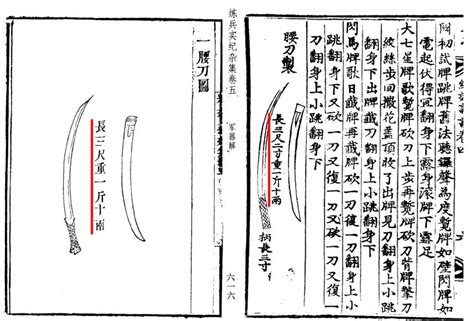 初試牌跳牌舊法聽鑼聲為度覽牌如壁閃牌如
電起伏得宜翻身下露身滾牌下露足
大七星牌歌覽牌砍刀上步再覽牌砍刀背牌擎刀
紋絲步回撒花蓋頂收了出牌見刀翻身上小跳
翻身下出牌藏刀翻身上小跳翻身下
閃馬牌歌曰藏牌再藏牌砍一刀翻身上小
跳翻身下又砍一刀又復一刀又砍一刀又復一
刀翻身上小跳翻身下
腰刀製
長三尺二寸重一斤十兩
柄長三寸
练兵实纪杂集卷五 军器解
六一六
一腰刀圖
長三尺重一斤十兩